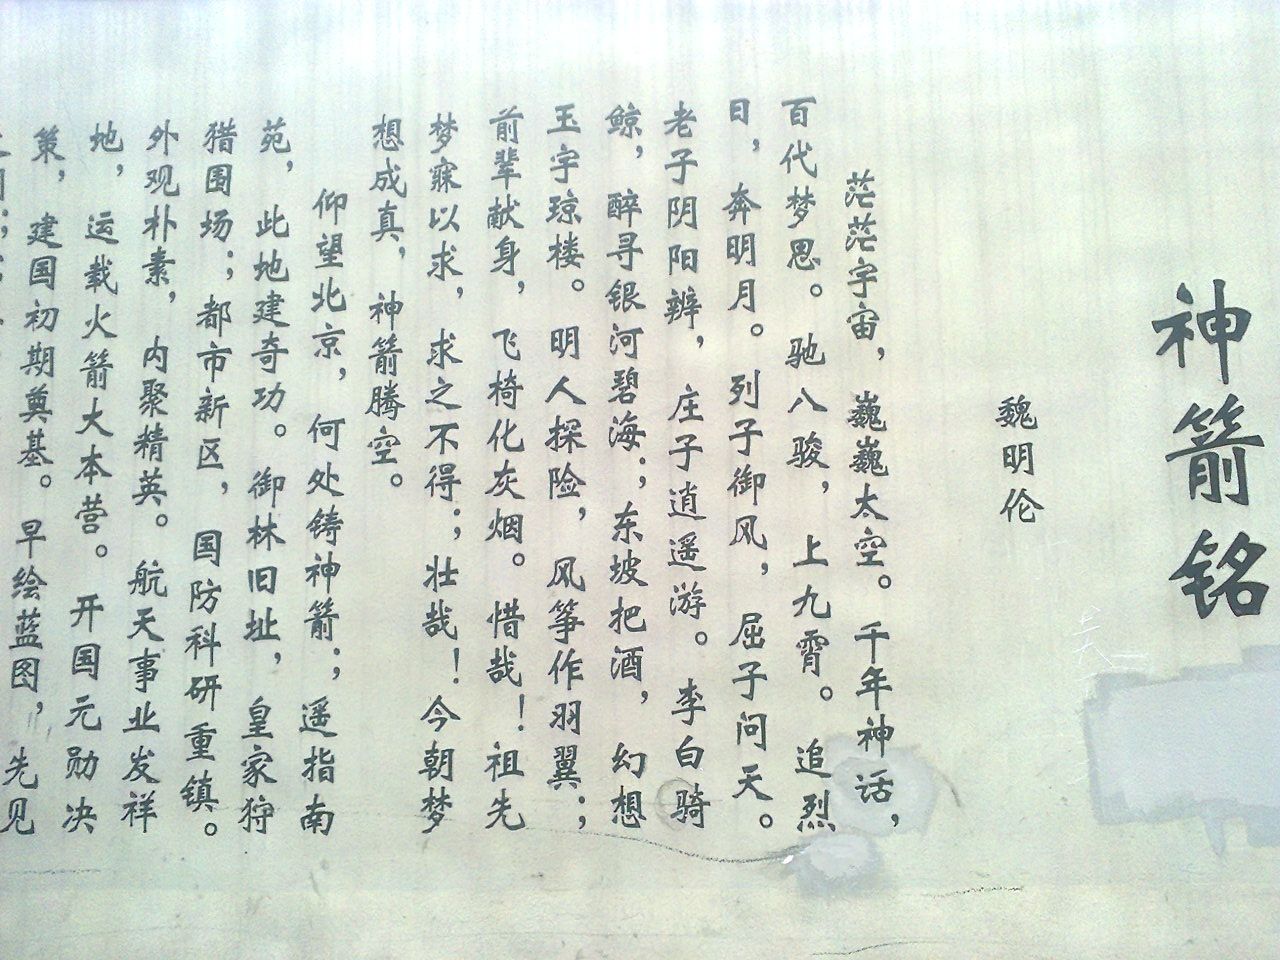 神箭铭
魏明伦
茫茫宇宙，巍巍太空。千年神话，
百代梦思。驰八骏，上九霄。追烈
日，奔明月。列子御风，屈子问天。
老子阴阳辨，庄子逍遥游。李白骑
鲸，醉寻银河碧海；东坡把酒，幻想
玉宇琼楼。明人探险，风筝作羽翼；
前辈献身，飞椅化灰烟。惜哉！祖先
梦寐以求，求之不得；壮哉！今朝梦
想成真，神箭腾空。
仰望北京，何处铸神箭；遥指南
苑，此地建奇功。御林旧址，皇家狩
猎围场；都市新区，国防科研重镇。
外观朴素，内聚精英。航天事业发祥
地，运载火箭大本营。开国元勋决
策，建国初期奠基。早绘蓝图，先见